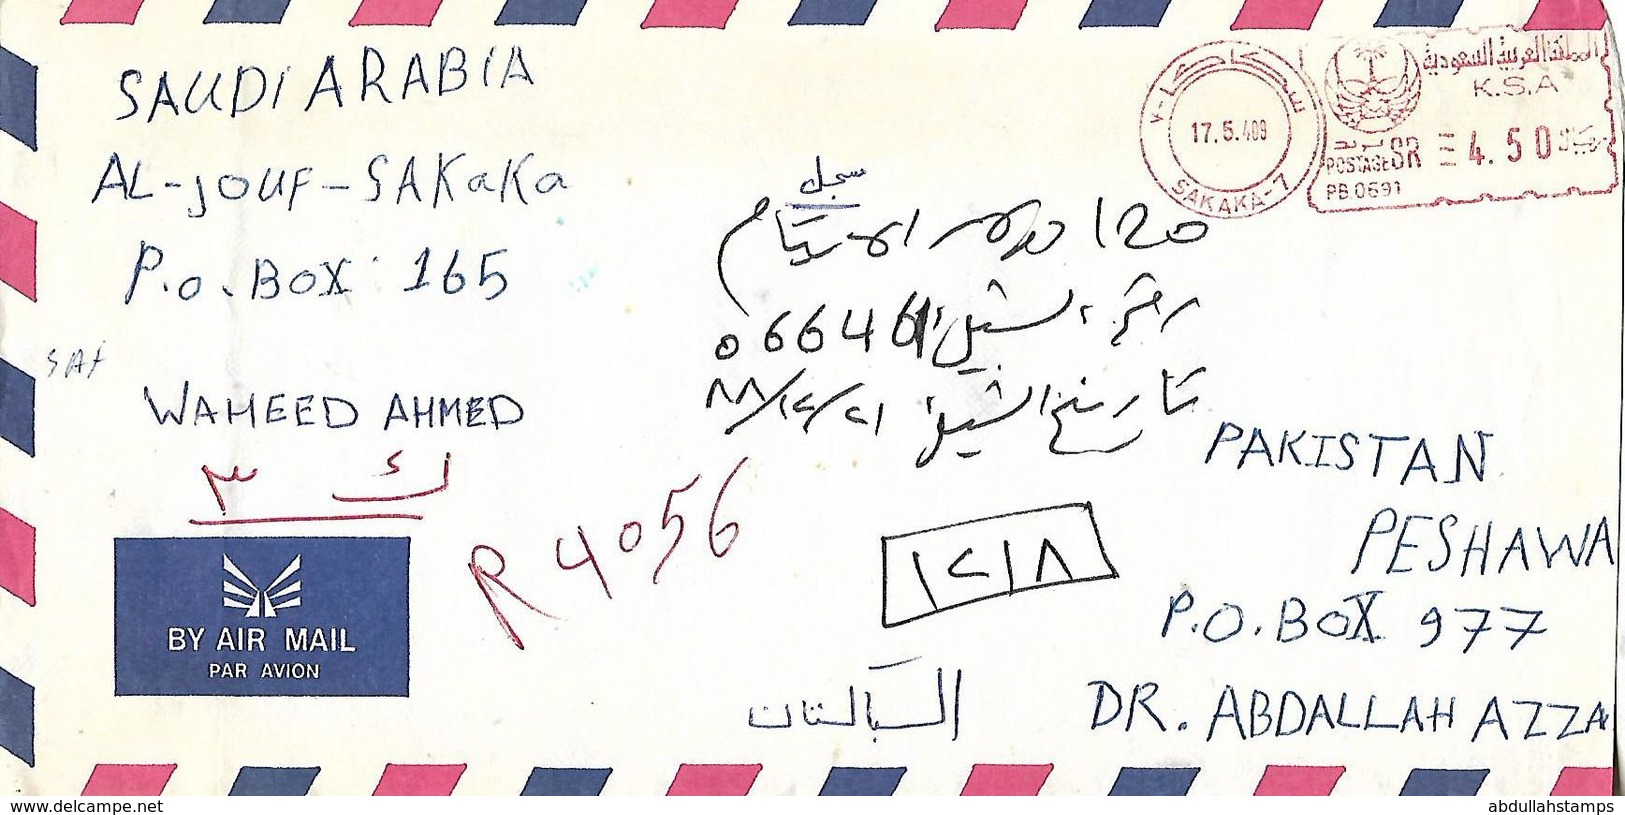 SAUDI ARABIA
AL-JOUF-SAKaKa
P.O.BOX 165
SAf
WAHEED AHMED
ك ٣
BY AIR MAIL
PAR AVION
R 4056
سكاكا-٧
17.5.409
SAKAKA-7
المملكة العربية السعودية
K.S.A
POSTAGE SR 4.50
PB.0691
سجل
120 الايتام
رقم الشيك 066461
تاريخ الشيك ٨٨/١٢/٢١
١٢١٨
PAKISTAN
PESHAWA
P.O.BOX 977
DR. ABDALLAH AZZA
abdullahstamps